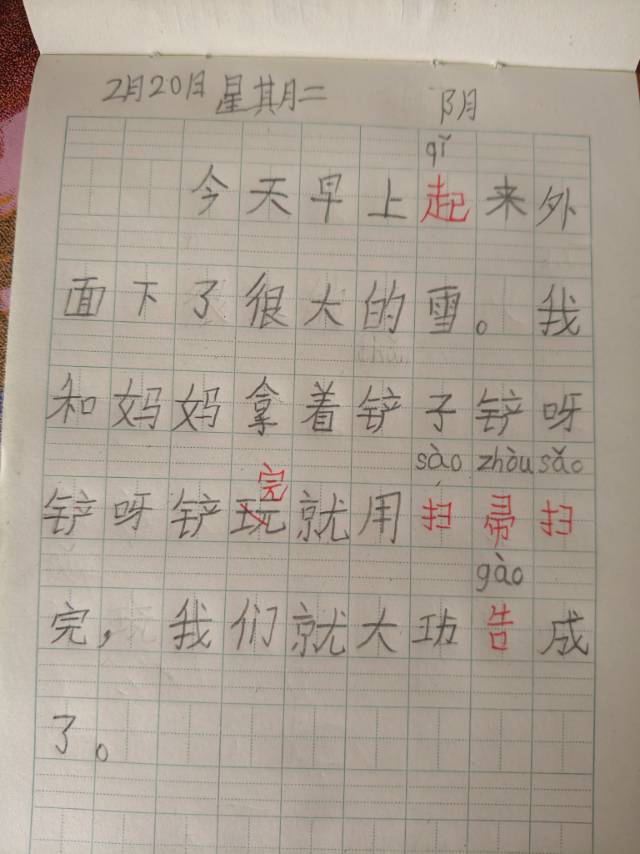 2月20日 星期二 阴
qǐ
今天早上起来外
面下了很大的雪。我
和妈妈拿着铲子铲呀
sào zhòu sǎo
完
铲呀铲玩就用扫帚扫
gào
完，我们就大功告成
了。